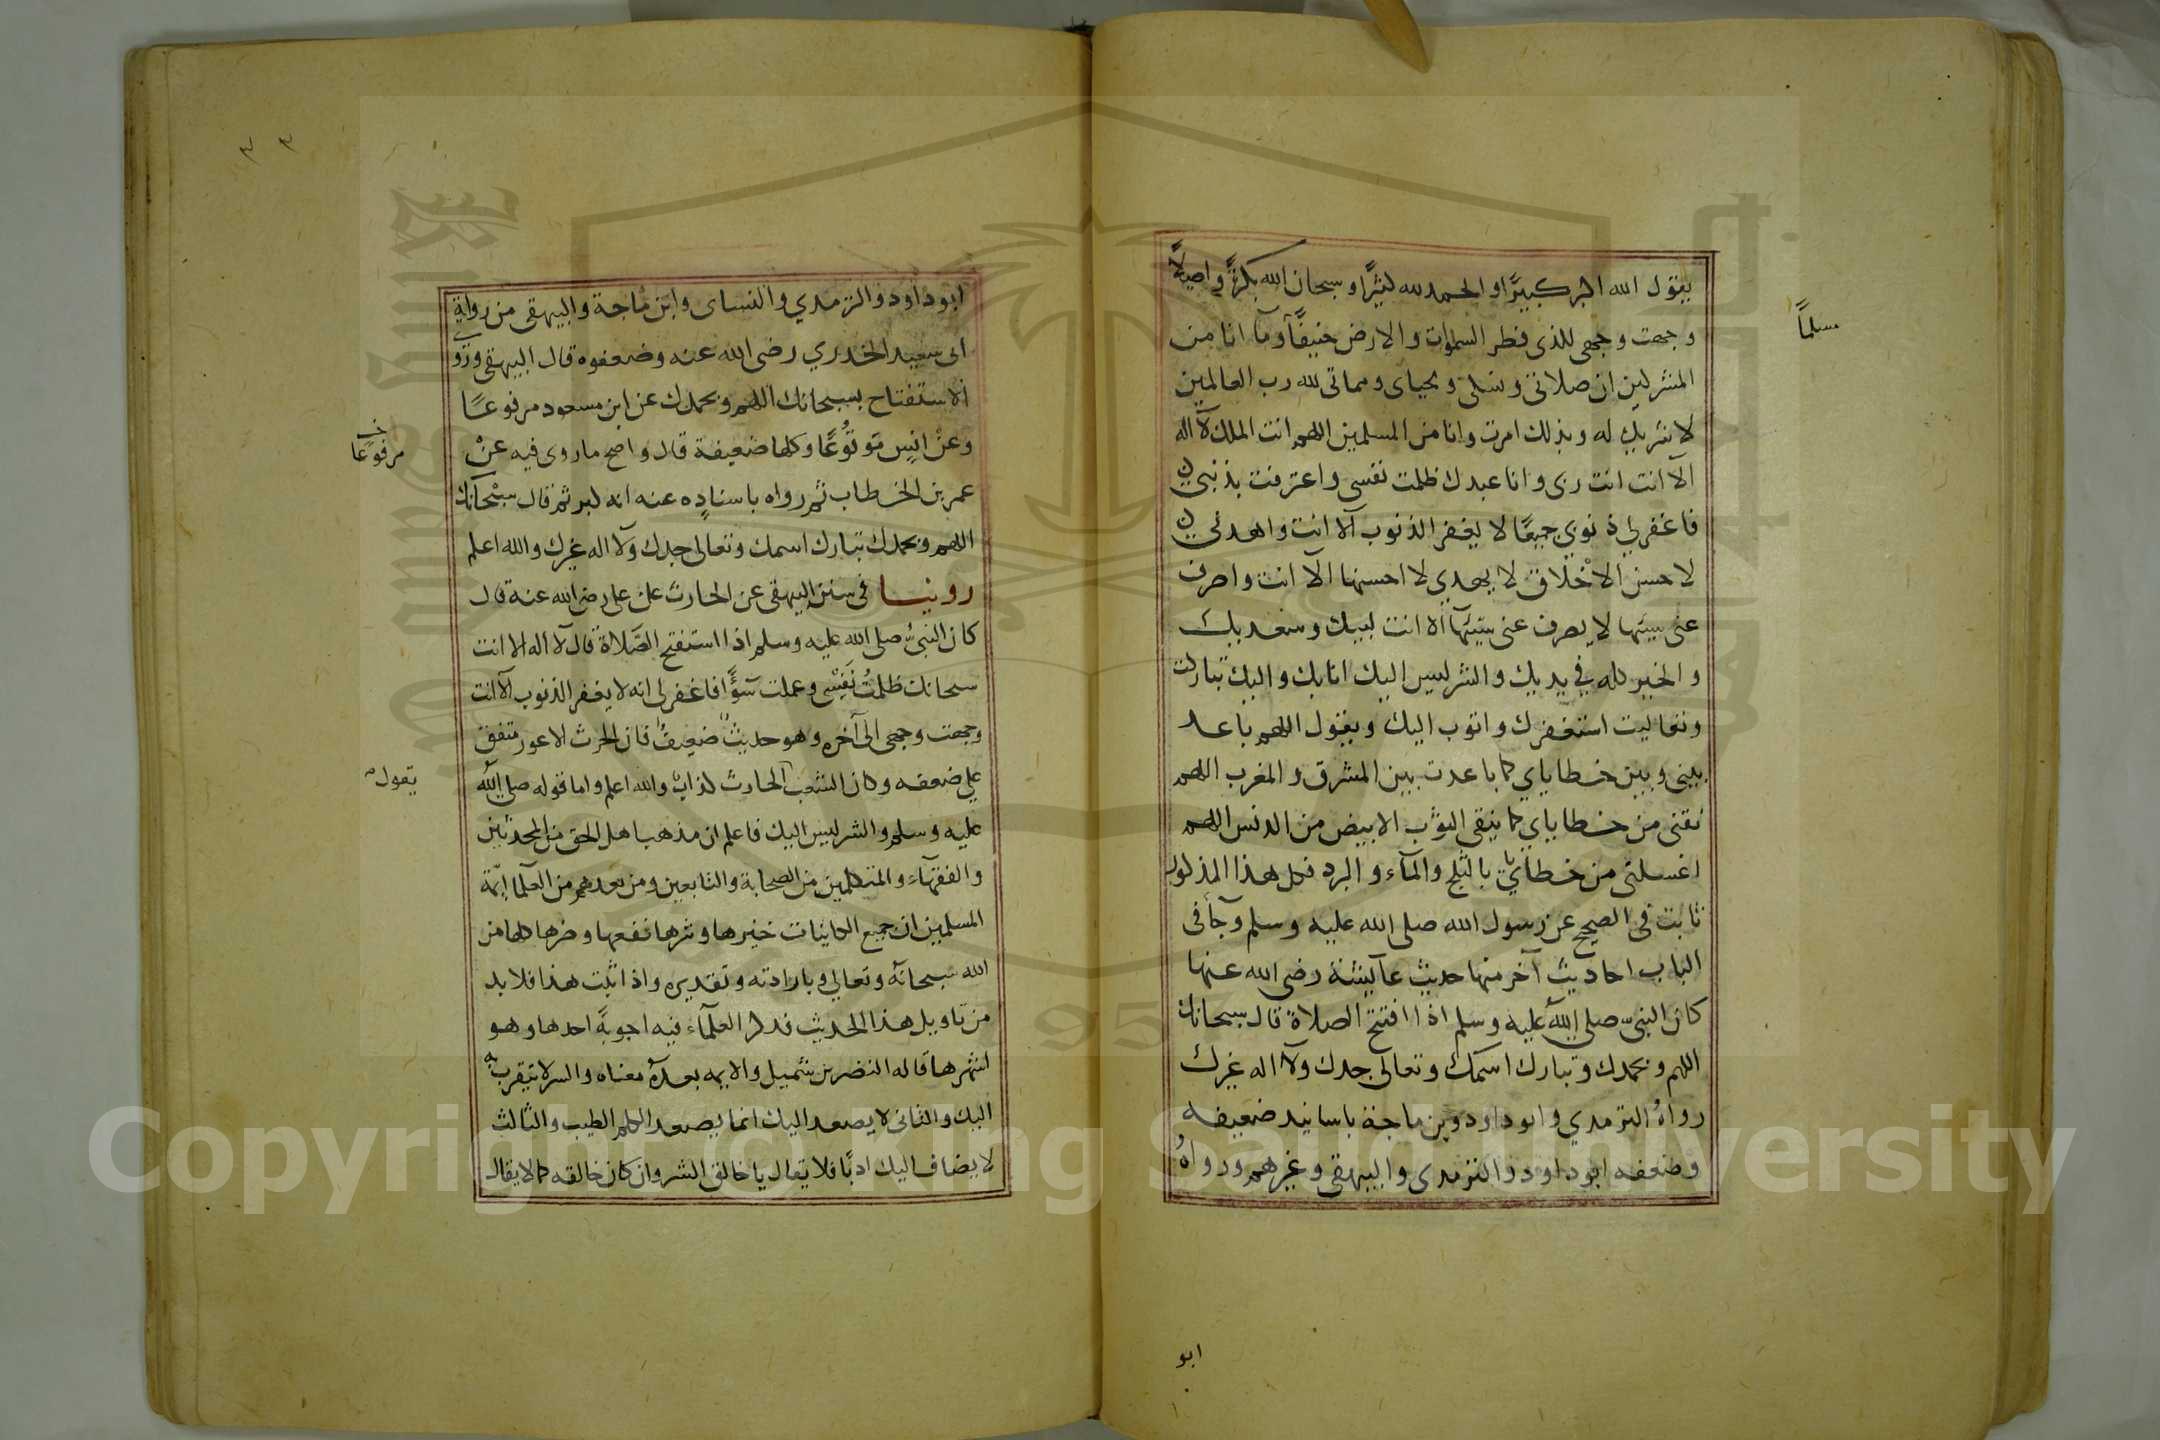 يقول الله اكبر كبيرًا والحمد لله كثيرًا وسبحان الله بكرةً واصيلًا
وجهت وجهى للذى فطر السموات والارض حنيفًا وما انا من
مسلمًا
المشركين ان صلاتى ونسكى ومحياى ومماتى لله رب العالمين
لا شريك له وبذلك امرت وانا من المسلمين اللهم انت الملك لآ اله
الآ انت انت ربى وانا عبدك ظلمت نفسى واعترفت بذنبي
فاغفر لي ذنوبي جميعًا لا يغفر الذنوب الا انت واهدني
لاحسن الاخلاق لا يهدي لاحسنها الآ انت واصرف
عنى سيئها لا يصرف عنى سيئها الا انت لبيك وسعديك
والخير كله في يديك والشر ليس اليك انا بك واليك تباركت
وتعاليت استغفرك واتوب اليك ويقول اللهم باعد
بينى وبين خطاياي كما باعدت بين المشرق والمغرب اللهم
نقنى من خطاياي كما ينقى الثوب الابيض من الدنس اللهم
اغسلنى من خطاياي بالثلج والمآء والبرد فكل هذا المذكور
ثابت فى الصحيح عن رسول الله صلى الله عليه وسلم وجآ فى
الباب احاديث آخر منها حديث عآيشة رضى الله عنها
كان النبى صلى الله عليه وسلم اذا افتتح الصلاة قال سبحانك
اللهم وبحمدك وتبارك اسمك وتعالى جدك ولآ اله غيرك
رواهُ الترمدي وابو داود وبن ماجة باسانيد ضعيفه
وضعفه ابو داود والترمدى والبيهقى وغيرهم ورواهُ
ابو
ابو داود والترمدي والنساى وابن ماجة والبيهقى من رواية
ابى سعيد الخدري رضى الله عنه وضعفوه قال البيهقى وروي
الاستفتاح بسبحانك اللهم وبحمدك عن ابن مسعود مرفوعًا
وعن انسٍ وكلها ضعيفة قال واصح ما روى فيه عنْ
مرفوعًا
عمر بن الخطاب ثم رواه باسناده عنه انه كبر ثم قال سبحانك
اللهم وبحمدك تبارك اسمك وتعالى جدك ولآ اله غيرك والله اعلم
روينا فى سنن البيهقى عن الحارث عن على رضى الله عنه قال
كان النبى صلى الله عليه وسلم اذا استفتح الصَّلاة قال لآ اله الا انت
سبحانك ظلمتُ نَفْسِى وعملت سوًٓا فاغفر لى انه لا يغفر الذنوب الآ انت
وجهت وجهى الى آخره وهو حديث ضعيف فان الحرث الاعور متفق
علي ضعفه وكان الشعبى الحارث كذاب والله اعلم واما قوله صلى الله
يقول
عليه وسلم والشر ليس اليك فاعلم ان مذهب اهل الحق من المحدثين
والفقهآء والمتكلمين من الصحابة والتابعين ومن بعدهم من العلمآ ائمة
المسلمين ان جميع الكاينات خيرها وشرها نفعها وضرها كلها من
الله سبحانه وتعالي وبارادته وتقديره واذا ثبت هذا فلا بد
من تاويل هذا الحديث فذكر العلمآء فيه اجوبةً احدها وهو
اشهرها قاله النضر بن شميل والايمه بعده معناه والشر لا يتقرب به
اليك والثانى لا يصعد اليك انما يصعد الكلم الطيب والثالث
لا يضاف اليك ادبًا فلا يقال يا خالق الشر وان كان خالقه كما لا يقال
Copyright © King Saud University